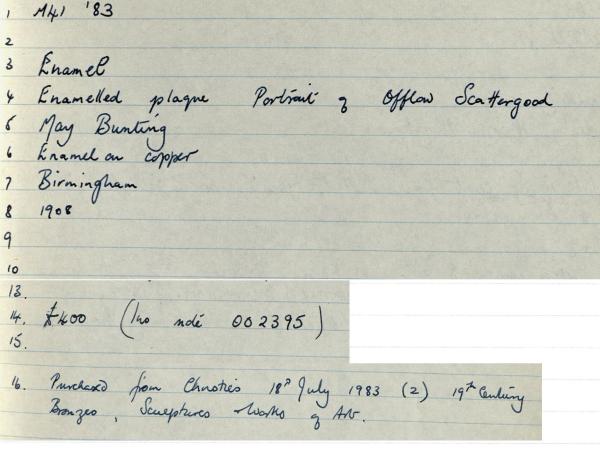 1 M41 '83
2
3 Enamel
4 Enamelled plaque Portrait of Offlow Scattergood
5 May Bunting
6 Enamel on copper
7 Birmingham
8 1908
9
10
13.
14. £400 (Inv note 002395)
15.
16. Purchased from Christies 18th July 1983 (2) 19th Century
Bronzes, Sculptures + Works of Art.